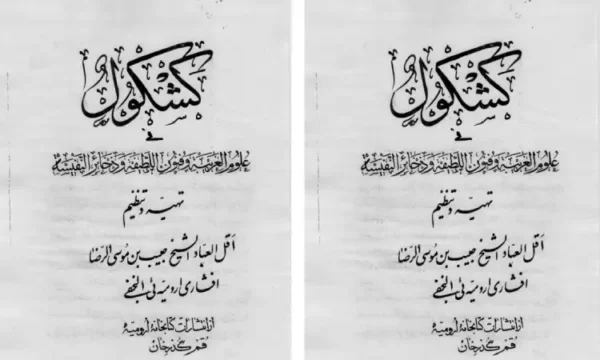 كشكول
في
علوم الغريبة وفنون اللطيفة وذخائر النفيسة
تهیه و تنظیم
اقل العباد الشیخ حبیب بن موسی الرضا
افشاری ارومیه ئی النجفی
از انتشارات کتابخانه ارومیه
قم گذرخان
كشكول
في
علوم الغريبة وفنون اللطيفة وذخائر النفيسة
تهیه و تنظیم
اقل العباد الشیخ حبیب بن موسی الرضا
افشاری ارومیه ئی النجفی
از انتشارات کتابخانه ارومیه
قم گذرخان